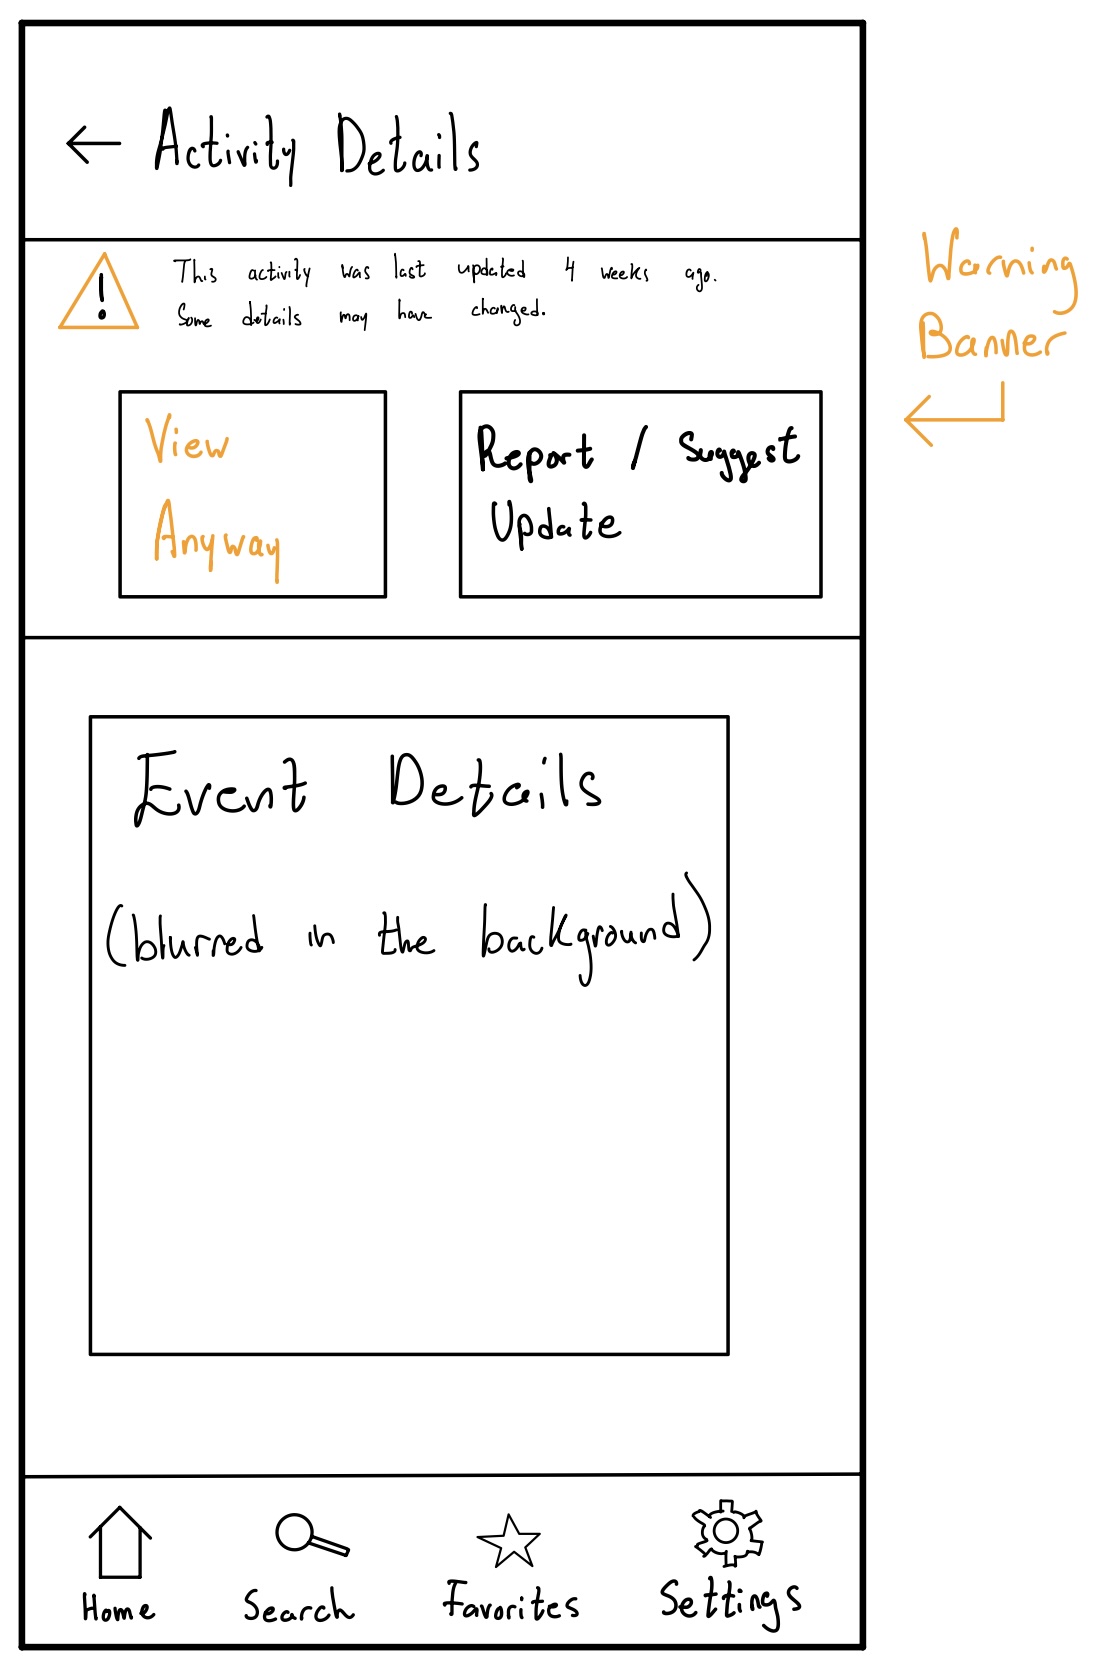 Activity Details
This activity was last updated 4 weeks ago.
Some details may have changed.
Warning
Banner
View
Anyway
Report / Suggest
Update
Event Details
(blurred in the background)
Home
Search
Favorites
Settings